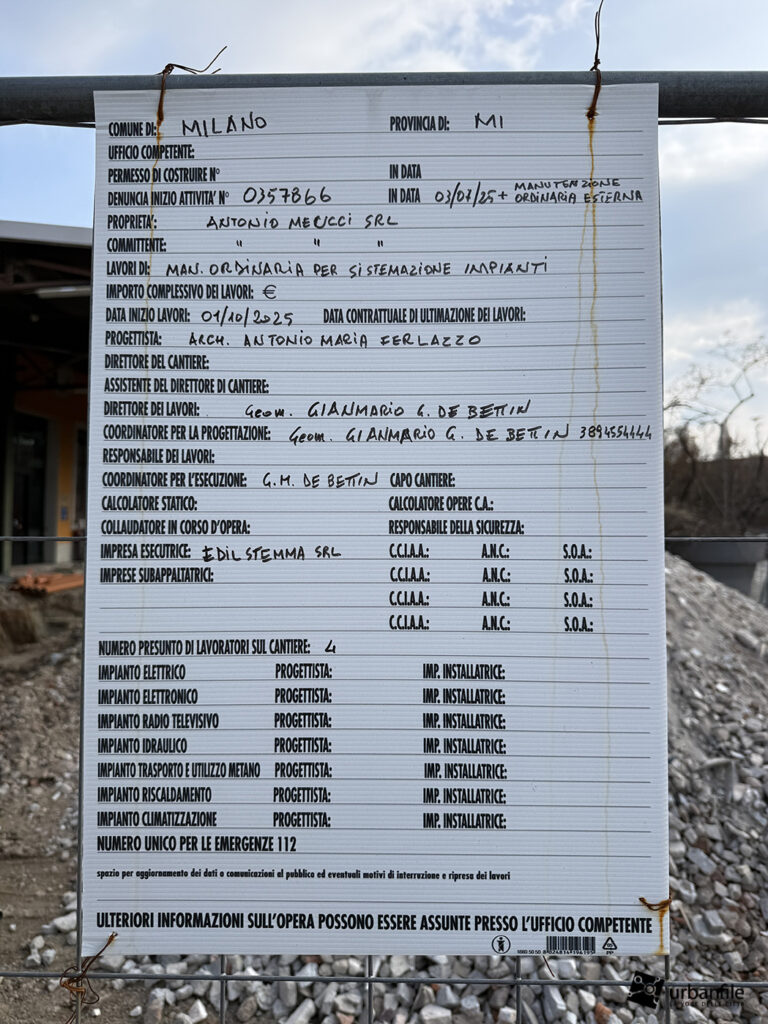 COMUNE DI: MILANO PROVINCIA DI: MI
UFFICIO COMPETENTE:
PERMESSO DI COSTRUIRE N° IN DATA
DENUNCIA INIZIO ATTIVITA' N° 0357866 IN DATA 03/07/25 + MANUTENZIONE ORDINARIA ESTERNA
PROPRIETA': ANTONIO MEUCCI SRL
COMMITTENTE: " " "
LAVORI DI: MAN. ORDINARIA PER SISTEMAZIONE IMPIANTI
IMPORTO COMPLESSIVO DEI LAVORI: €
DATA INIZIO LAVORI: 01/10/2025 DATA CONTRATTUALE DI ULTIMAZIONE DEI LAVORI:
PROGETTISTA: ARCH. ANTONIO MARIA FERLAZZO
DIRETTORE DEL CANTIERE:
ASSISTENTE DEL DIRETTORE DI CANTIERE:
DIRETTORE DEI LAVORI: Geom. GIANMARIO G. DE BETTIN
COORDINATORE PER LA PROGETTAZIONE: Geom. GIANMARIO G. DE BETTIN 3894554444
RESPONSABILE DEI LAVORI:
COORDINATORE PER L'ESECUZIONE: G.M. DE BETTIN CAPO CANTIERE:
CALCOLATORE STATICO: CALCOLATORE OPERE C.A.:
COLLAUDATORE IN CORSO D'OPERA: RESPONSABILE DELLA SICUREZZA:
IMPRESA ESECUTRICE: EDIL STEMMA SRL C.C.I.A.A.: A.N.C.: S.O.A.:
IMPRESE SUBAPPALTATRICI: C.C.I.A.A.: A.N.C.: S.O.A.:
C.C.I.A.A.: A.N.C.: S.O.A.:
C.C.I.A.A.: A.N.C.: S.O.A.:
NUMERO PRESUNTO DI LAVORATORI SUL CANTIERE: 4
IMPIANTO ELETTRICO PROGETTISTA: IMP. INSTALLATRICE:
IMPIANTO ELETTRONICO PROGETTISTA: IMP. INSTALLATRICE:
IMPIANTO RADIO TELEVISIVO PROGETTISTA: IMP. INSTALLATRICE:
IMPIANTO IDRAULICO PROGETTISTA: IMP. INSTALLATRICE:
IMPIANTO TRASPORTO E UTILIZZO METANO PROGETTISTA: IMP. INSTALLATRICE:
IMPIANTO RISCALDAMENTO PROGETTISTA: IMP. INSTALLATRICE:
IMPIANTO CLIMATIZZAZIONE PROGETTISTA: IMP. INSTALLATRICE:
NUMERO UNICO PER LE EMERGENZE 112
spazio per aggiornamento dei dati o comunicazioni al pubblico ed eventuali motivi di interruzione e ripresa dei lavori
ULTERIORI INFORMAZIONI SULL'OPERA POSSONO ESSERE ASSUNTE PRESSO L'UFFICIO COMPETENTE
PP
urbanfile
LA VOCE DELLE CITTÀ